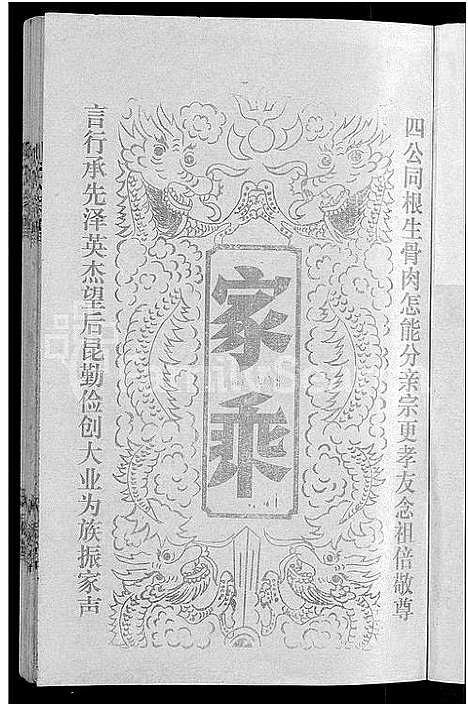 四公同根生骨肉怎能分亲宗更孝友念祖倍敬尊
家乘
言行承先泽英杰望后昆勤俭创大业为族振家声